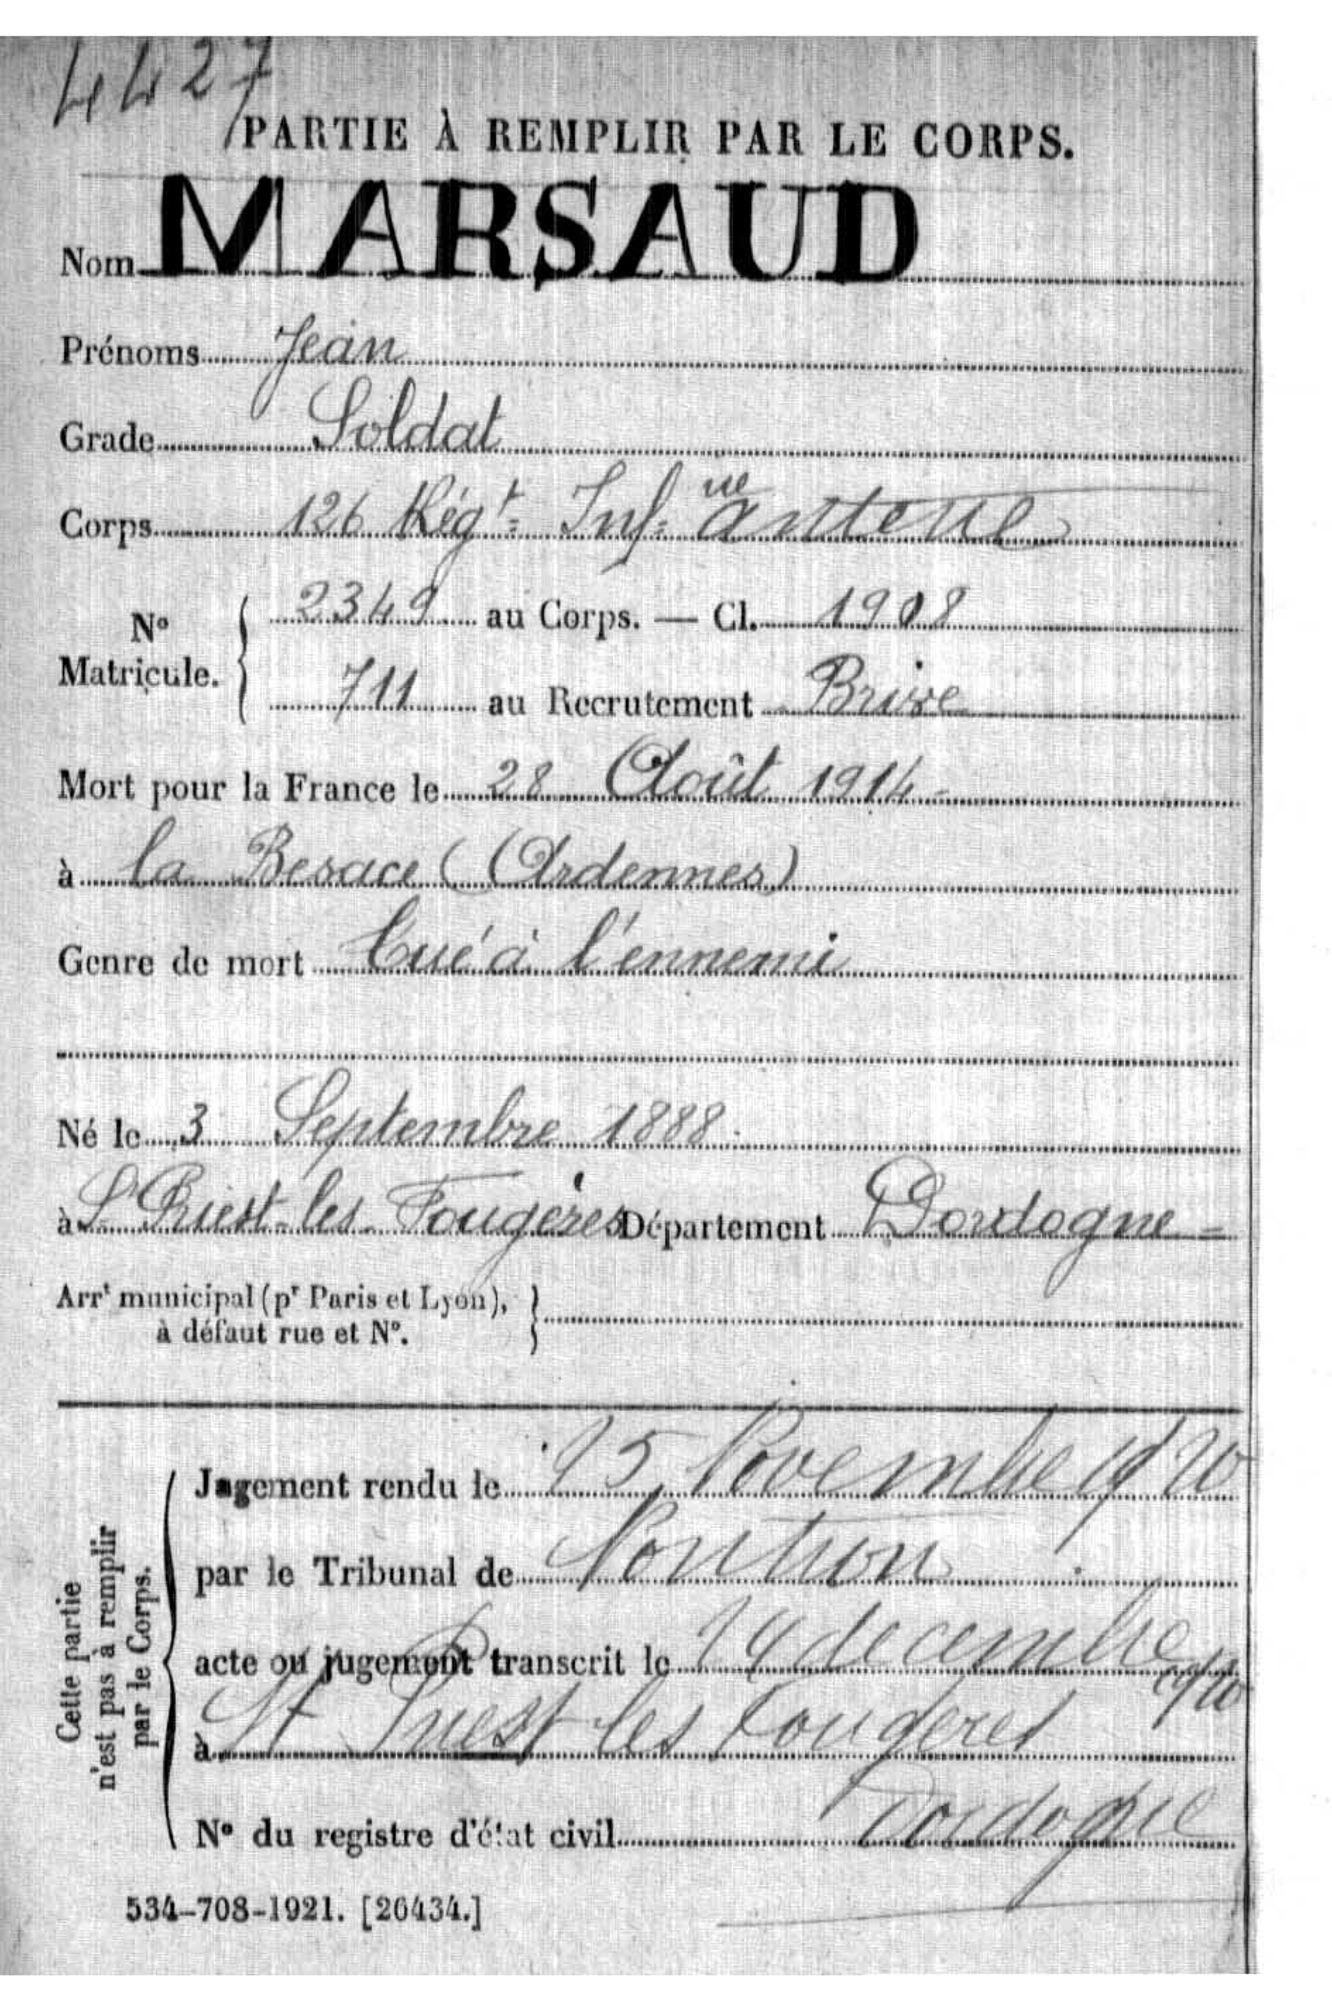 4427
PARTIE À REMPLIR PAR LE CORPS.
Nom MARSAUD
Prénoms Jean
Grade Soldat
Corps 126 Régt Inf.
N° Matricule. 2349 au Corps. — Cl. 1908
711 au Recrutement Brive
Mort pour la France le 28 Août 1914
à la Besace (Ardennes)
Genre de mort Tué à l'ennemi
Né le 3 Septembre 1888
à St Priest-les-Fougères Département Dordogne
Arrt municipal (pr Paris et Lyon),
à défaut rue et N°.
Cette partie
n'est pas à remplir
par le Corps.
Jugement rendu le 25 Novembre 1920
par le Tribunal de Nontron
acte ou jugement transcrit le décembre 1920
à St Priest les Fougères
Dordogne
N° du registre d'état civil
534-708-1921. [26434.]